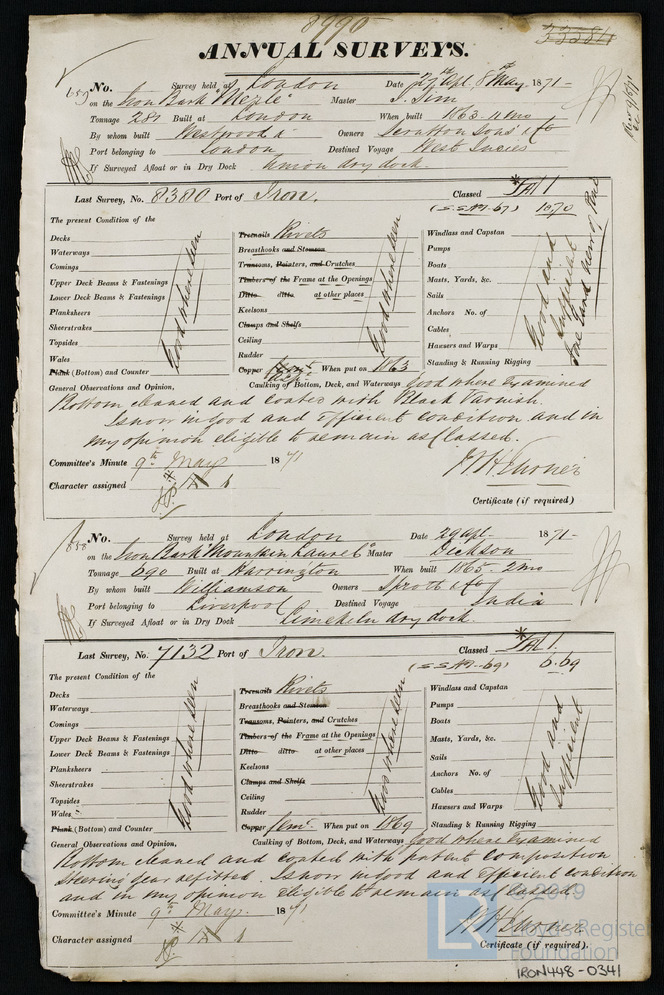 8990
ANNUAL SURVEYS.
No. Survey held at London Date 27th Apl, 8th May, 1871-
on the Iron Bark "Meple" Master S. Sim
Tonnage 281 Built at London When built 1863-11mo
By whom built Westwood & Owners Scrutton Sons & Co
Port belonging to London Destined Voyage West Indies
If Surveyed Afloat or in Dry Dock Union dry dock.
Last Survey, No. 8380 Port of Iron. Classed A 1
(S.S.No1-67) 10/70
The present Condition of the
Decks
Waterways
Comings
Upper Deck Beams & Fastenings
Lower Deck Beams & Fastenings
Planksheers
Sheerstrakes
Topsides
Wales
Plank (Bottom) and Counter
Good where seen
Treenails Rivets
Breasthooks and Stemson
Transoms, Pointers, and Crutches
Timbers of the Frame at the Openings
Ditto ditto at other places
Keelsons
Clamps and Shelfs
Ceiling
Rudder
Copper When put on 1863
Good where seen
Windlass and Capstan
Pumps
Boats
Masts, Yards, &c.
Sails
Anchors No. of
Cables
Hawsers and Warps
Standing & Running Rigging
Good and
Sufficient
General Observations and Opinion, Caulking of Bottom, Deck, and Waterways Good where Examined
Bottom cleaned and coated with Black Varnish.
Is now in Good and Efficient condition and in
my opinion eligible to remain as Classed.
Committee's Minute 9th May 1871
Character assigned A 1
Certificate (if required)
858 No. Survey held at London Date 29 Apl. 1871-
on the Iron Bark "Mountain Laurel" Master Dickson
Tonnage 690 Built at Harrington When built 1865-2mo
By whom built Williamson Owners Sprott & Co
Port belonging to Liverpool Destined Voyage India
If Surveyed Afloat or in Dry Dock Limekiln dry dock.
Last Survey, No. 7132 Port of Iron. Classed A 1.
(S.S.No1-69) 6.69
The present Condition of the
Decks
Waterways
Comings
Upper Deck Beams & Fastenings
Lower Deck Beams & Fastenings
Planksheers
Sheerstrakes
Topsides
Wales
Plank (Bottom) and Counter
Good where seen
Treenails Rivets
Breasthooks and Stemson
Transoms, Pointers, and Crutches
Timbers of the Frame at the Openings
Ditto ditto at other places
Keelsons
Clamps and Shelfs
Ceiling
Rudder
Copper Cemt. When put on 1869
Good where seen
Windlass and Capstan
Pumps
Boats
Masts, Yards, &c.
Sails
Anchors No. of
Cables
Hawsers and Warps
Standing & Running Rigging
Good and
Sufficient
General Observations and Opinion, Caulking of Bottom, Deck, and Waterways Good where Examined
Bottom cleaned and coated with patent composition
Steering gear refitted. Is now in Good and Efficient condition
and in my opinion eligible to remain as Classed.
Committee's Minute 9th May 1871
Character assigned A 1
Certificate (if required).
© 2019
LR Lloyd's Register
Foundation
IRON448-0341